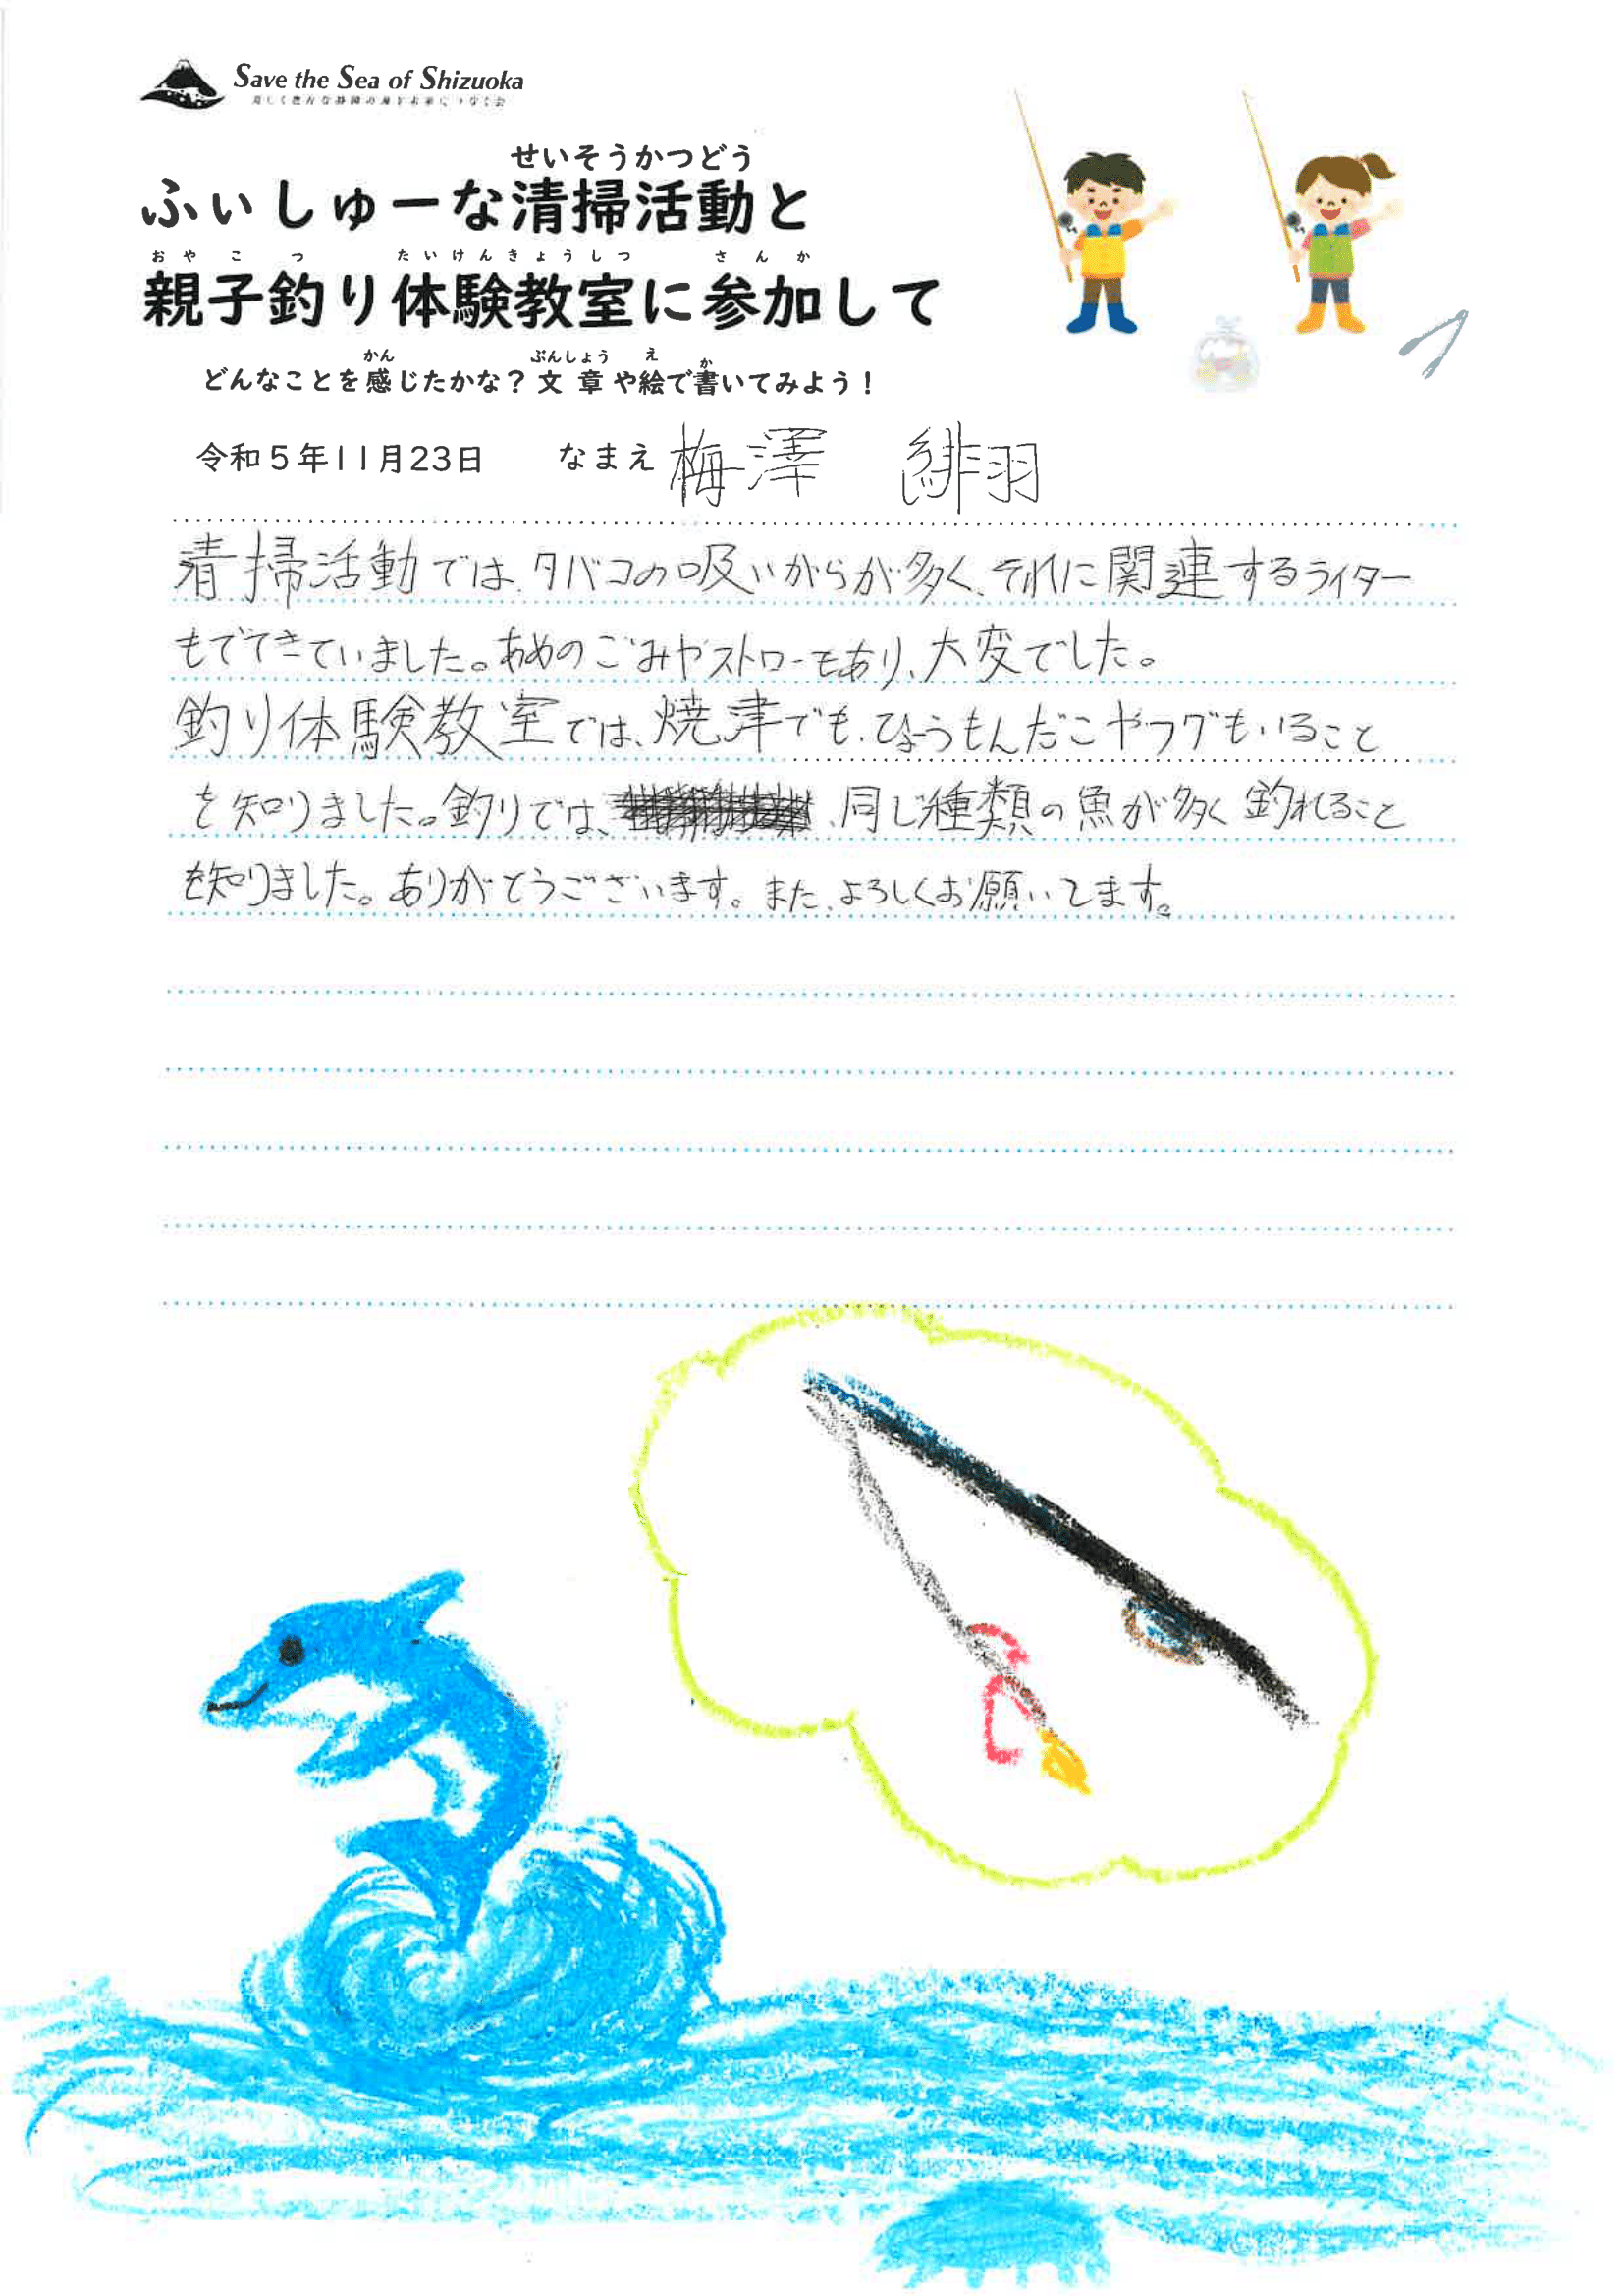 Save the Sea of Shizuoka
美しく豊かな静岡の海を未来につなぐ会
せいそうかつどう
ふぃしゅーな清掃活動と
おやこつ たいけんきょうしつ さんか
親子釣り体験教室に参加して
かん ぶんしょう え か
どんなことを感じたかな？文章や絵で書いてみよう！
令和5年11月23日 なまえ 梅澤 緋羽
清掃活動では、タバコの吸いがらが多く、それに関連するライター
もでてきていました。あめのごみやストローもあり、大変でした。
釣り体験教室では、焼津でも、ひょうもんだこやフグもいること
を知りました。釣りでは、同じ種類の魚が多く釣れること
を知りました。ありがとうございます。また、よろしくお願いします。